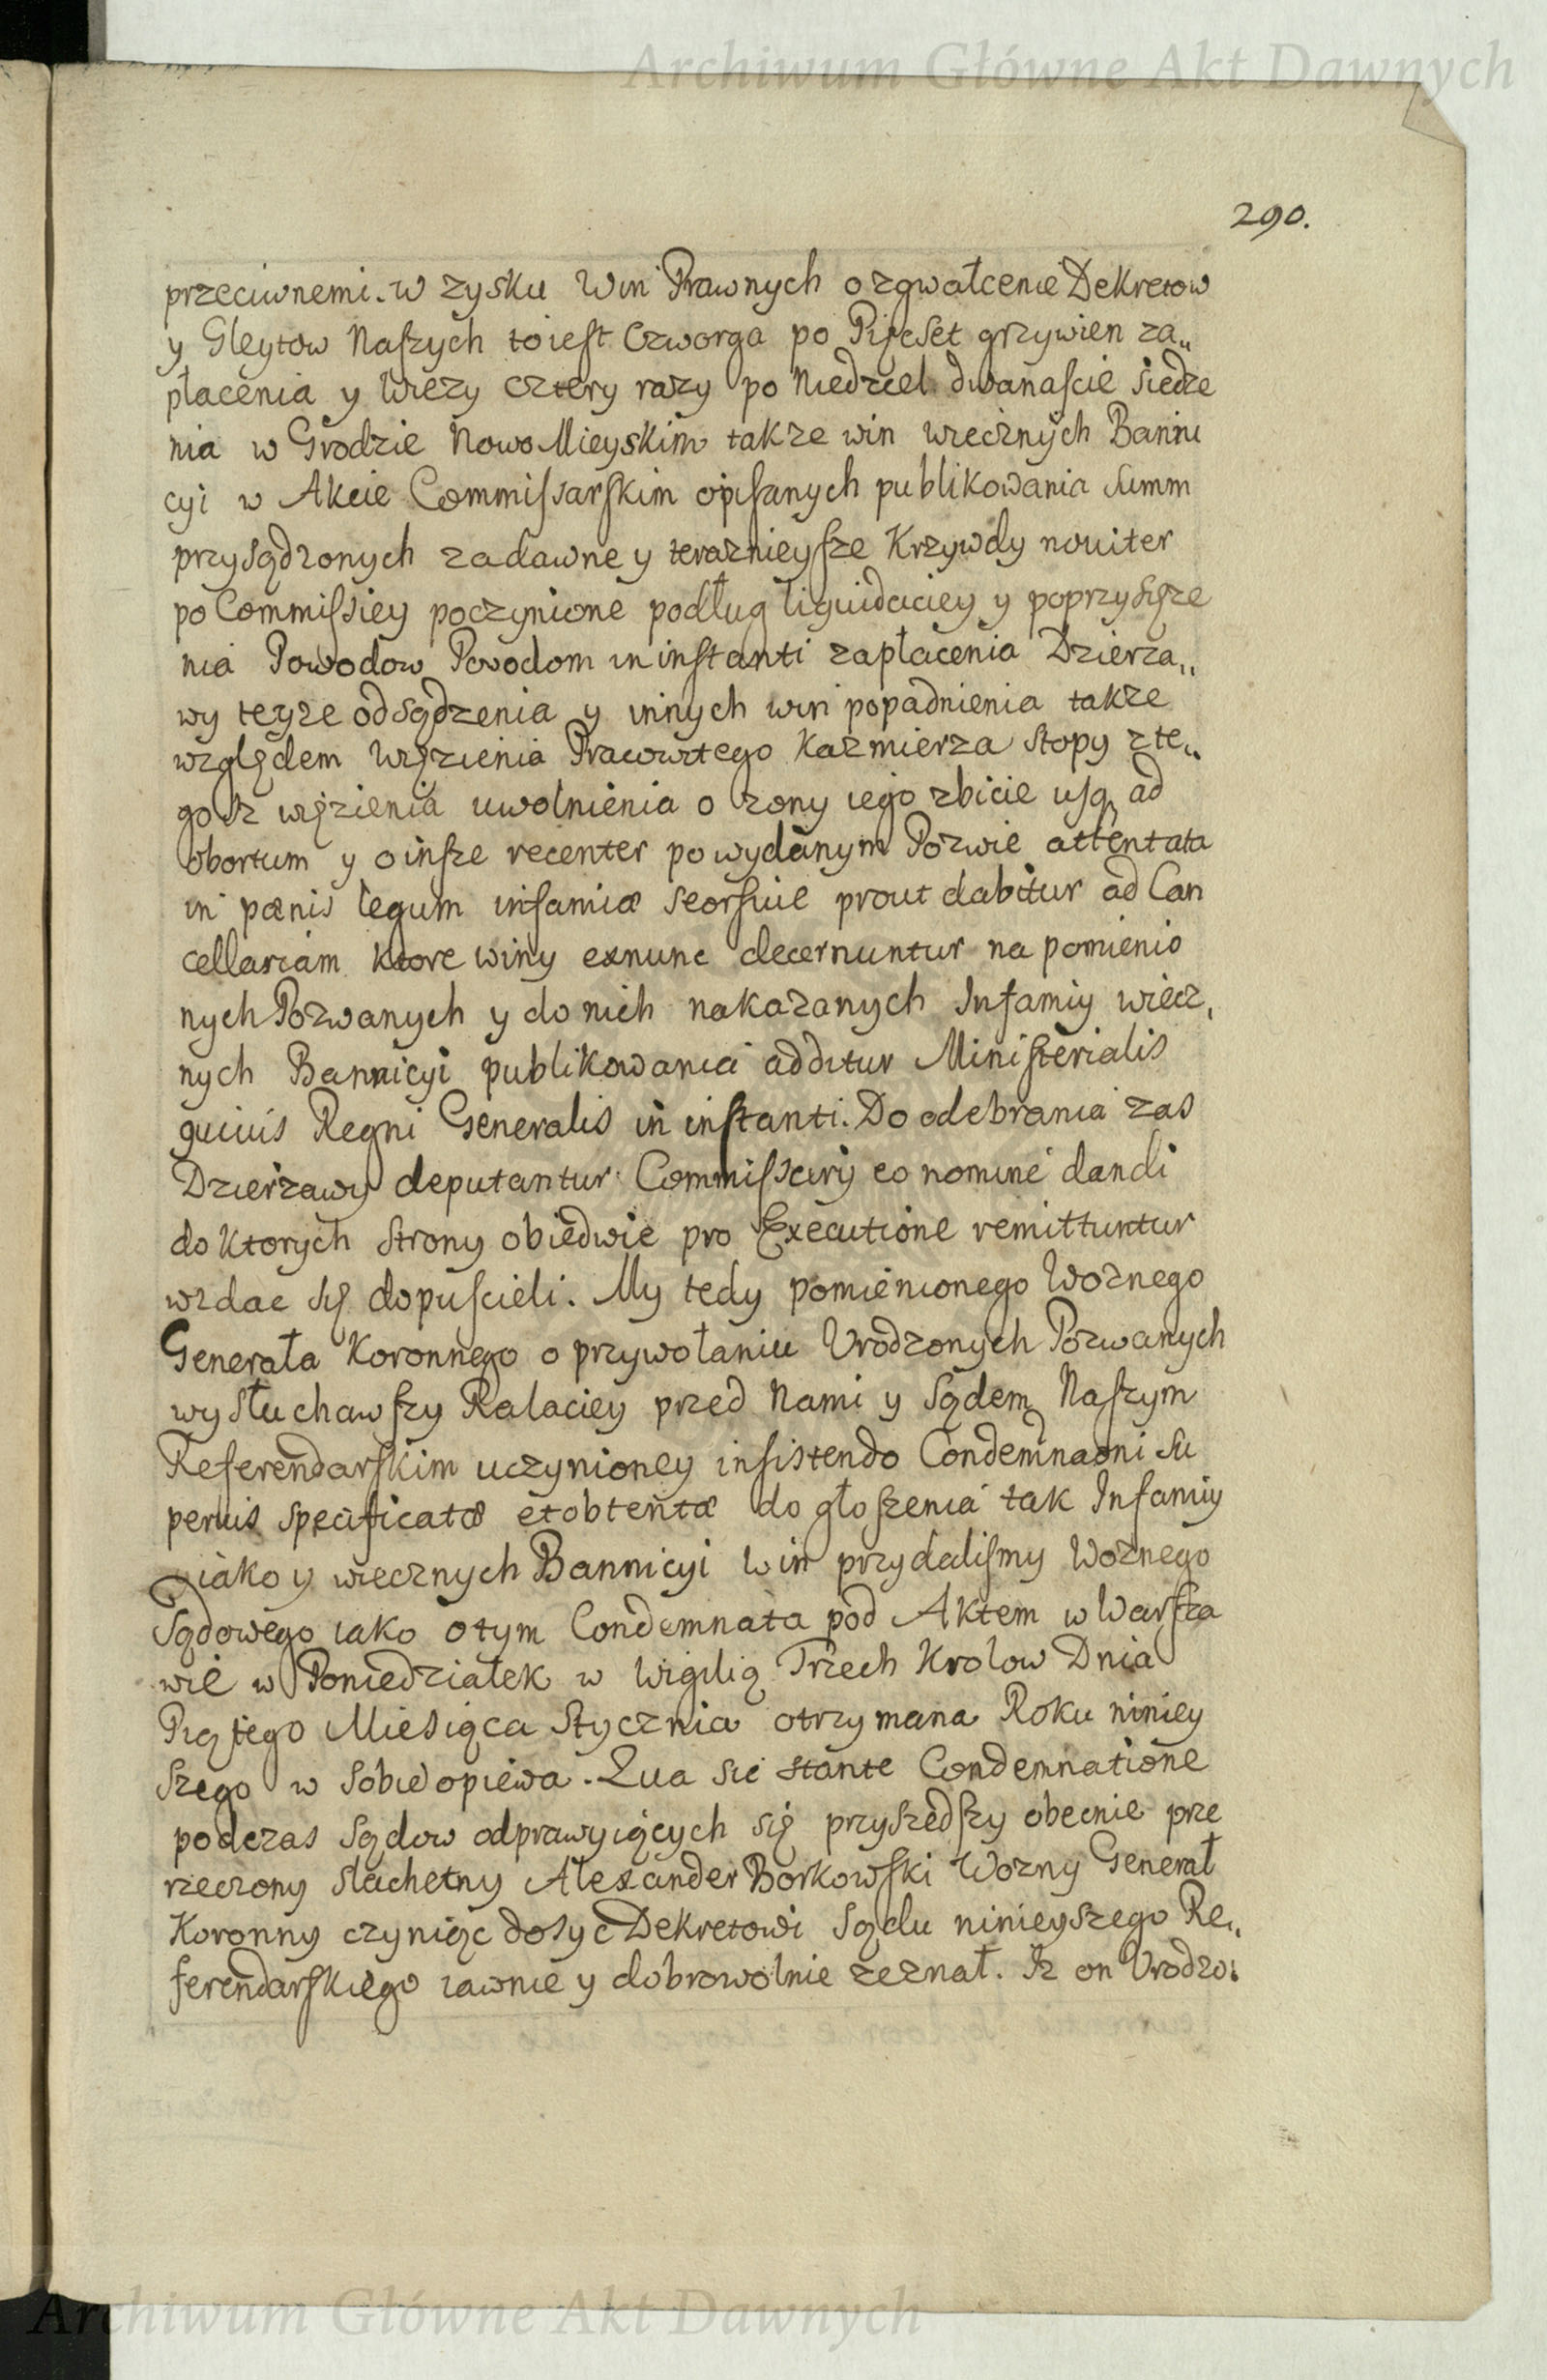 Archiwum Główne Akt Dawnych
290.
przeciwnemi. w zysku Win Prawnych o zgwałcenie Dekretow
y Gleytow Naszych toiest Czworga po Pięcset grzywien za„
płacenia y Wiezy cztery razy po Niedziel dwanascie siedze
nia w Grodzie NowoMieyskim takze win wiecznych Banni
cyi w Akcie Commissarskim opisanych publikowania Summ
przysądzonych zadawne y teraznieysze Krzywdy noviter
po Commissiey poczynione podług liquidaciey y poprzysięze
nia Powodow Powodom in instanti zapłacenia Dzierza„
wy teyze odsądzenia y innych win popadnienia takze
względem Więzienia Pracowitego Kazmierza Stopy z te„
gosz więzienia uwolnienia o zony iego zbicie usq ad
obortum y o insze recenter po wydanym Pozwie attentata
in pœnis legum infamiæ seorsive prout dabitur ad Can
cellariam ktore winy exnunc decernuntur na pomienio
nych Pozwanych y do nich nakazanych Infamiy wiecz,
nych Bannicyi publikowania additur Ministerialis
quivis Regni Generalis in instanti. Do odebrania zas
Dzierzawy deputantur Commissarij eo nomine dandi
do ktorych strony obiedwie pro Executione remittuntur
wzdac się dopuscieli. My tedy pomienionego Woznego
Generała Koronnego o przywołaniu Vrodzonych Pozwanych
wysłuchawszy Ralaciey przed Nami y Sądem Naszym
Referendarskim uczynioney insistendo Condemnaoni su
perius specificatæ et obtentæ do głoszenia tak Infamiy
iako y wiecznych Bannicyi win przydalismy Woznego
Sądowego iako o tym Condemnata pod Aktem w Warsza
wie w Poniedziałek w Wigilią Trzech Krolow Dnia
Piątego Miesiąca Stycznia otrzymana Roku niniey
szego w sobie opiewa. Qua sic stante Condemnatione
podczas Sądow odprawyiących się przyszedszy obecnie prze
rzeczony Slachetny Alexander Borkowski Wozny Generał
Koronny czyniąc dosyc Dekretowi Sądu ninieyszego Re„
ferendarskiego iawnie y dobrowolnie zeznał. Iz on Vrodzo:
Archiwum Główne Akt Dawnych